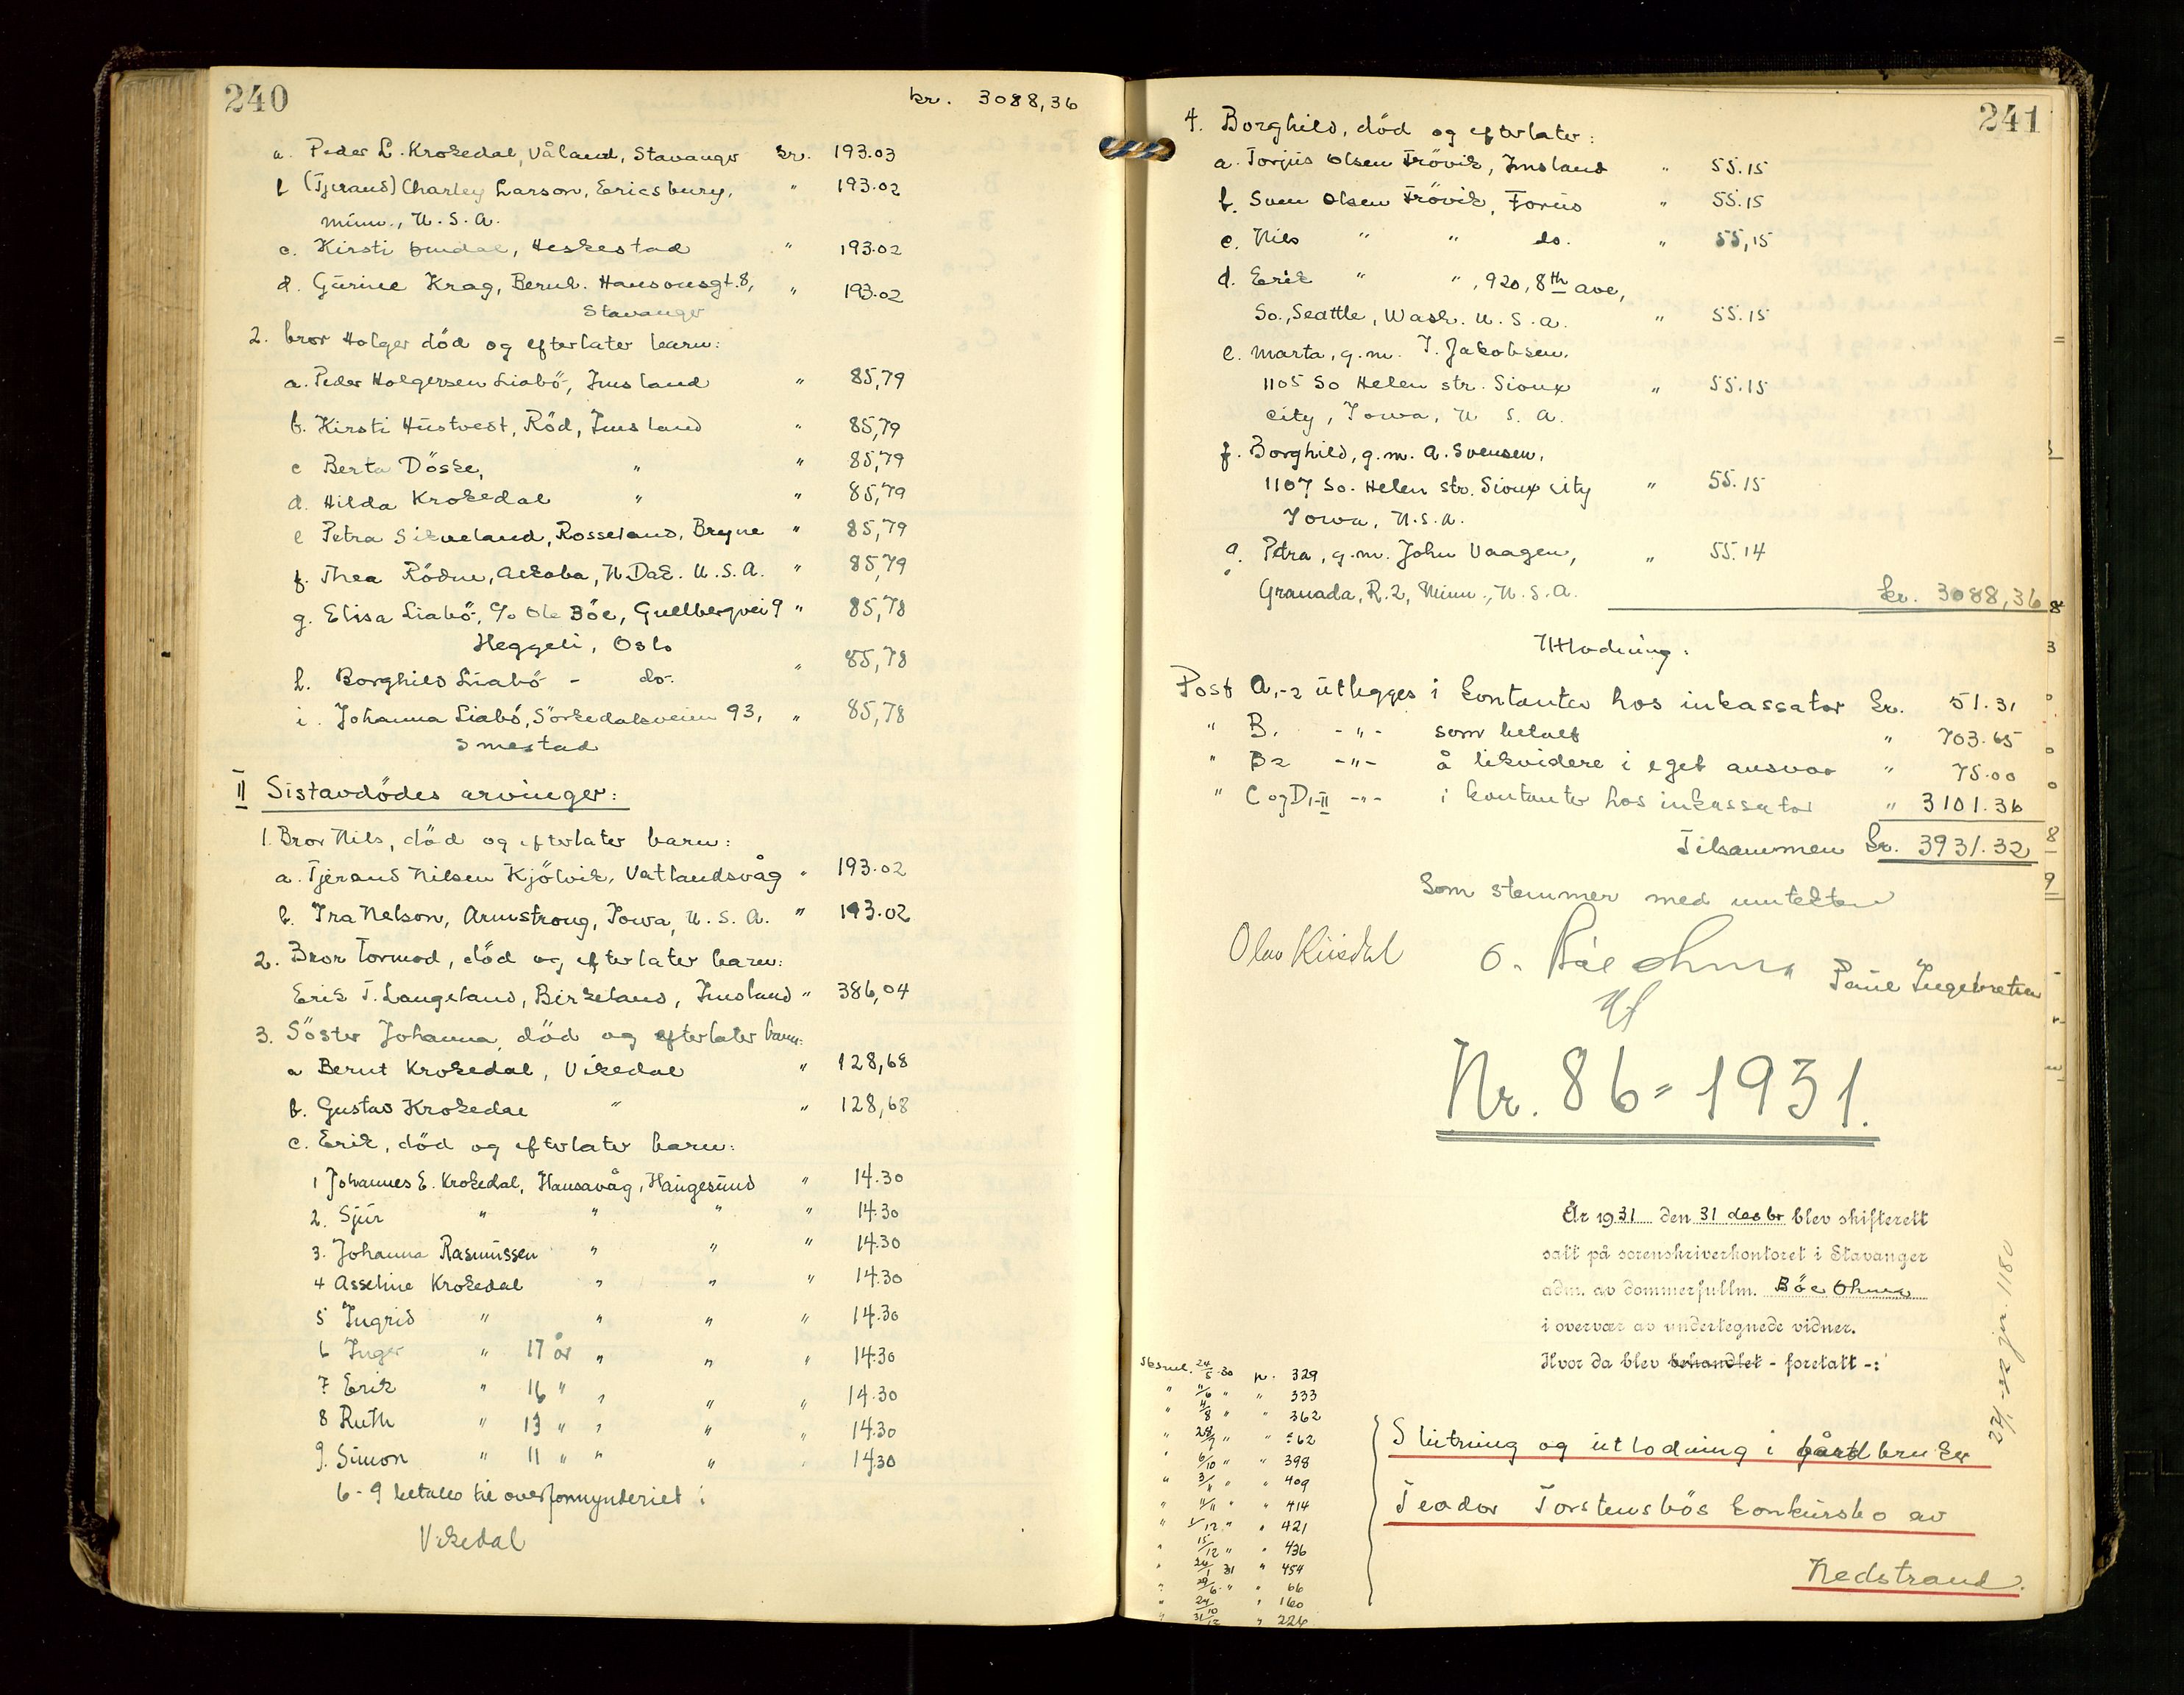 240
kr. 3088,36
a. Peder L. Krokedal, Våland, Stavanger kr. 193.03
b (Tjerand) Charley Larson, Ericsburg, " 193.02
Minn., U.S.A.
c. Kirsti Omdal, Heskestad " 193.02
d. Gurine Krag, Bernh. Hansonsgt. 8, " 193.02
Stavanger
2. bror Holger död og efterlater barn:
a. Peder Holgersen Liabö, Imsland " 85,79
b. Kirsti Hustvest, Röd, Imsland " 85,79
c Berta Döske, " " 85,79
d. Hilda Krokedal " " 85,79
e Petra Sikveland, Rosseland, Bryne " 85,79
f. Thea Rödne, Alkoba, N.Dak. U.S.A. " 85,79
g. Elisa Liabö, c/o Ole Böe, Gullbergvei 9 " 85,78
Heggeli, Oslo
h. Borghild Liabö - do. " 85,78
i. Johanna Liabö, Sörkedalsveien 93, " 85,78
Smestad
II Sistavdödes arvinger:
1. Bror Nils, död og efterlater barn:
a. Tjerand Nilsen Kjölvik, Vatlandsvåg " 193.02
b. Ira Nelson, Armstrong, Iowa, U.S.A. " 193.02
2. Bror Tormod, död og efterlater barn:
Erik T. Langeland, Birkeland, Imsland " 386,04
3. Söster Johanna, död og efterlater barn:
a Bernt Krokedal, Vikedal " 128,68
b. Gustav Krokedal " " 128,68
c. Erik, död og efterlater barn:
1 Johannes E. Krokedal, Hansavåg, Haugesund " 14.30
2. Sjur " " " " 14.30
3. Johanna Rasmussen " " " 14.30
4 Asseline Krokedal " " " 14.30
5 Ingrid " " " " 14.30
6 Inger " 17 år " " " 14.30
7 Erik " 16 " " " " 14.30
8 Ruth " 13 " " " " 14.30
9. Simon " 11 " " " " 14.30
6-9 betales til overformynderiet i
Vikedal
241
4. Borghild, död og efterlater:
a. Torjus Olsen Frövik, Imsland " 55.15
b. Sven Olsen Frövik, Forus " 55.15
c. Nils " " do. " 55,15
d. Erik " ", 920, 8th ave,
So., Seattle, Wash. U.S.A. " 55.15
e. Marta, g.m. T. Jakobsen,
1105 So Helen str. Sioux " 55.15
City, Iowa, U S. A.
f. Borghild, g.m. A. Svensen,
1107 So. Helen str. Sioux City " 55.15
Iowa, U.S.A.
g. Petra, g.m. John Vaagen, " 55.14
Granada, R.2, Minn., U.S.A. kr. 3088,36
Utlodning:
Post A,-2 utlegges i kontanter hos inkassator kr. 51.31
" B, -"- som betalt " 703.65
" B2 -"- å likvidere i eget ansvar " 75.00
" C og D,I-II -"- i kontanter hos inkassator " 3101.36
Tilsammen kr. 3931.32
Som stemmer med inntekten
Olav Kiisdal O. Böe Ohma Paul Ingebretsen
Nr. 86 = 1931.
År 1931 den 31 desbr blev skifterett
satt på sorenskriverkontoret i Stavanger
adm. av dommerfullm. Böe Ohma
i overvær av undertegnede vidner.
Hvor da blev behandlet - foretatt -:
24/1-32 jn. 1180
Sksml. 24/5 30 p. 329
" 11/6 " " 333
" 4/8 " " 362
" " " 562
" 6/10 " " 398
" " " 409
" 11/11 " " 414
" 1/12 " " 421
" 15/12 " " 436
" 24/1 31 " 454
" 29/6 " " 66
" 24/10 " 160
" 31/12 " 226
Slutning og utlodning i gårdbruker
Teodor Torstensbös konkursbo av
Nedstrand.